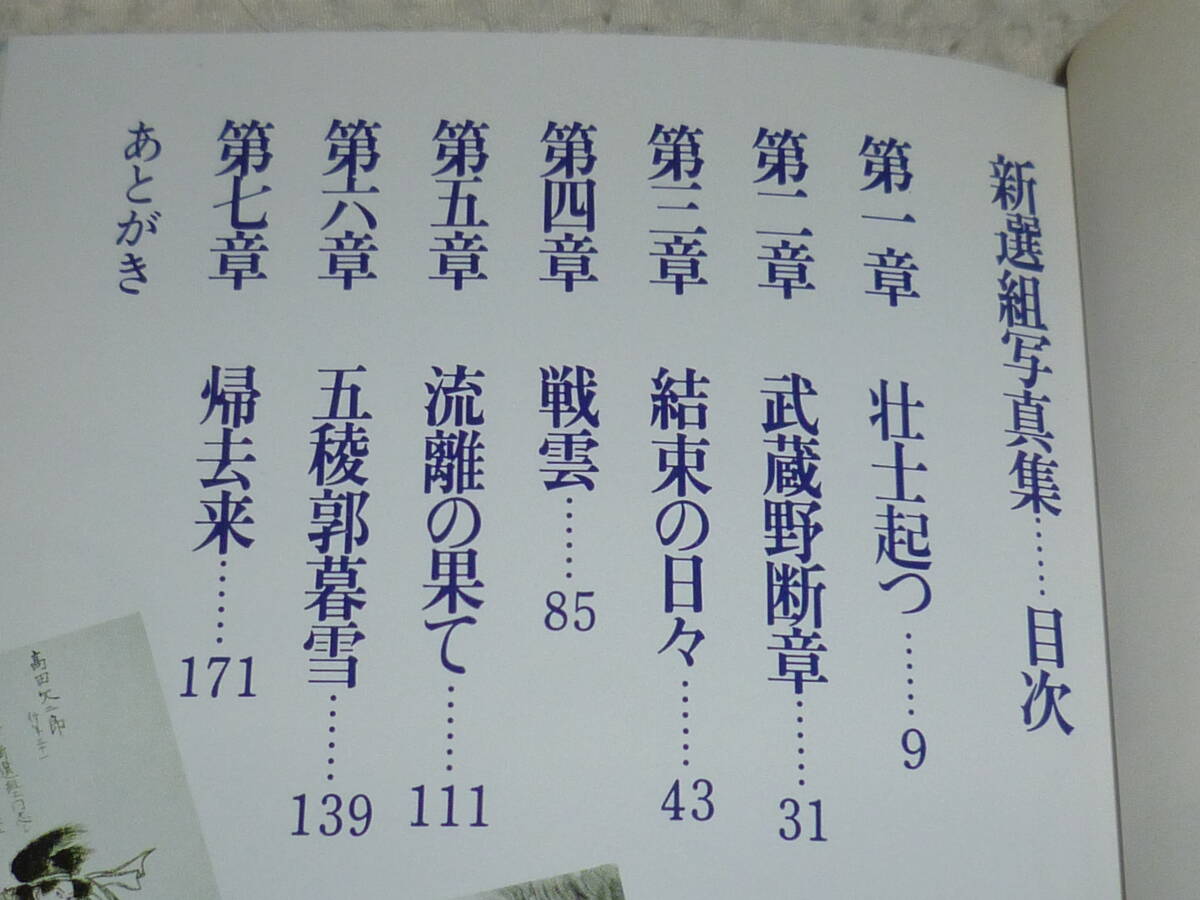 新選組写真集……目次
第一章 壮士起つ……9
第二章 武蔵野断章……31
第三章 結束の日々……43
第四章 戦雲……85
第五章 流離の果て……111
第六章 五稜郭暮雪……139
第七章 帰去来……171
あとがき